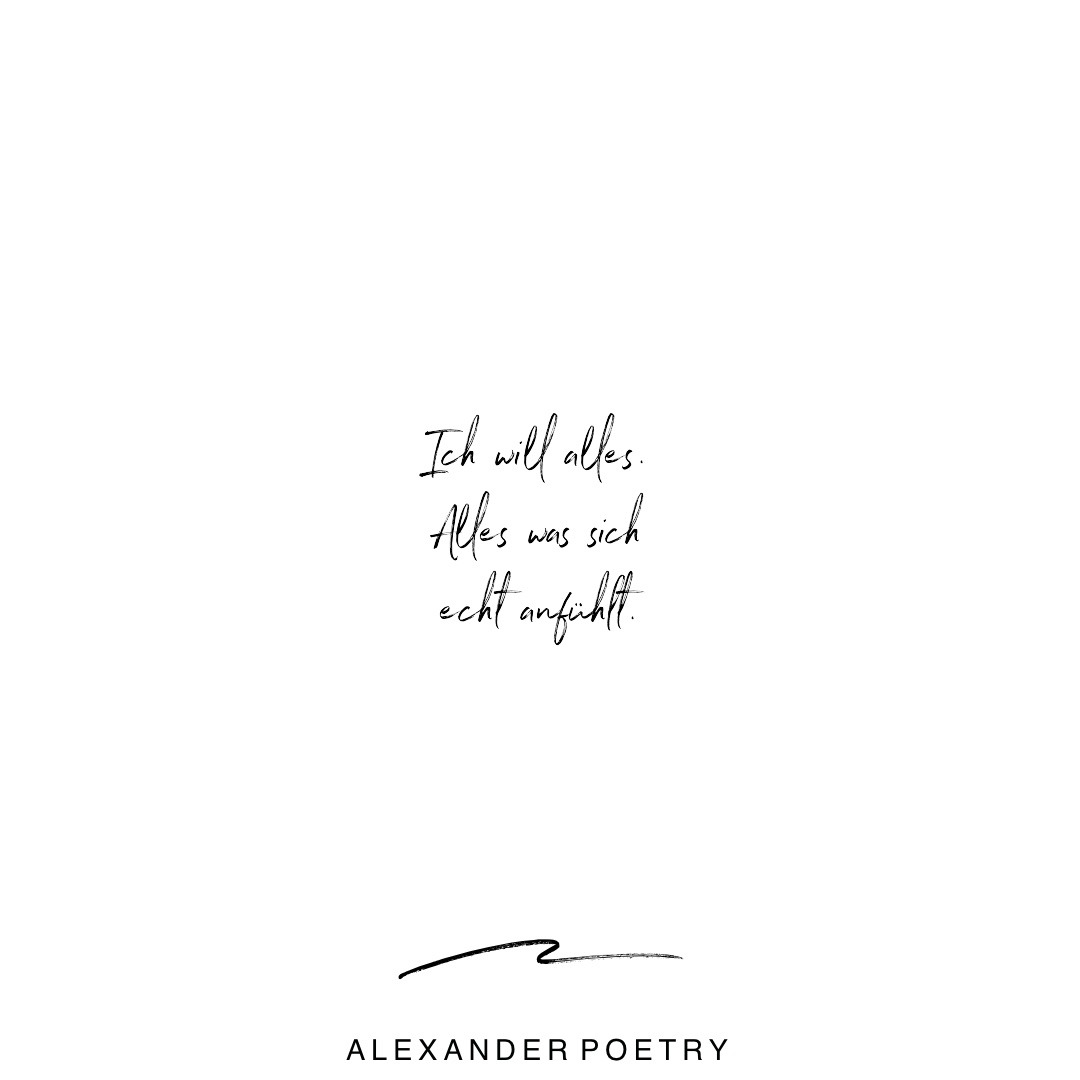 Ich will alles.
Alles was sich
echt anfühlt.
ALEXANDER POETRY